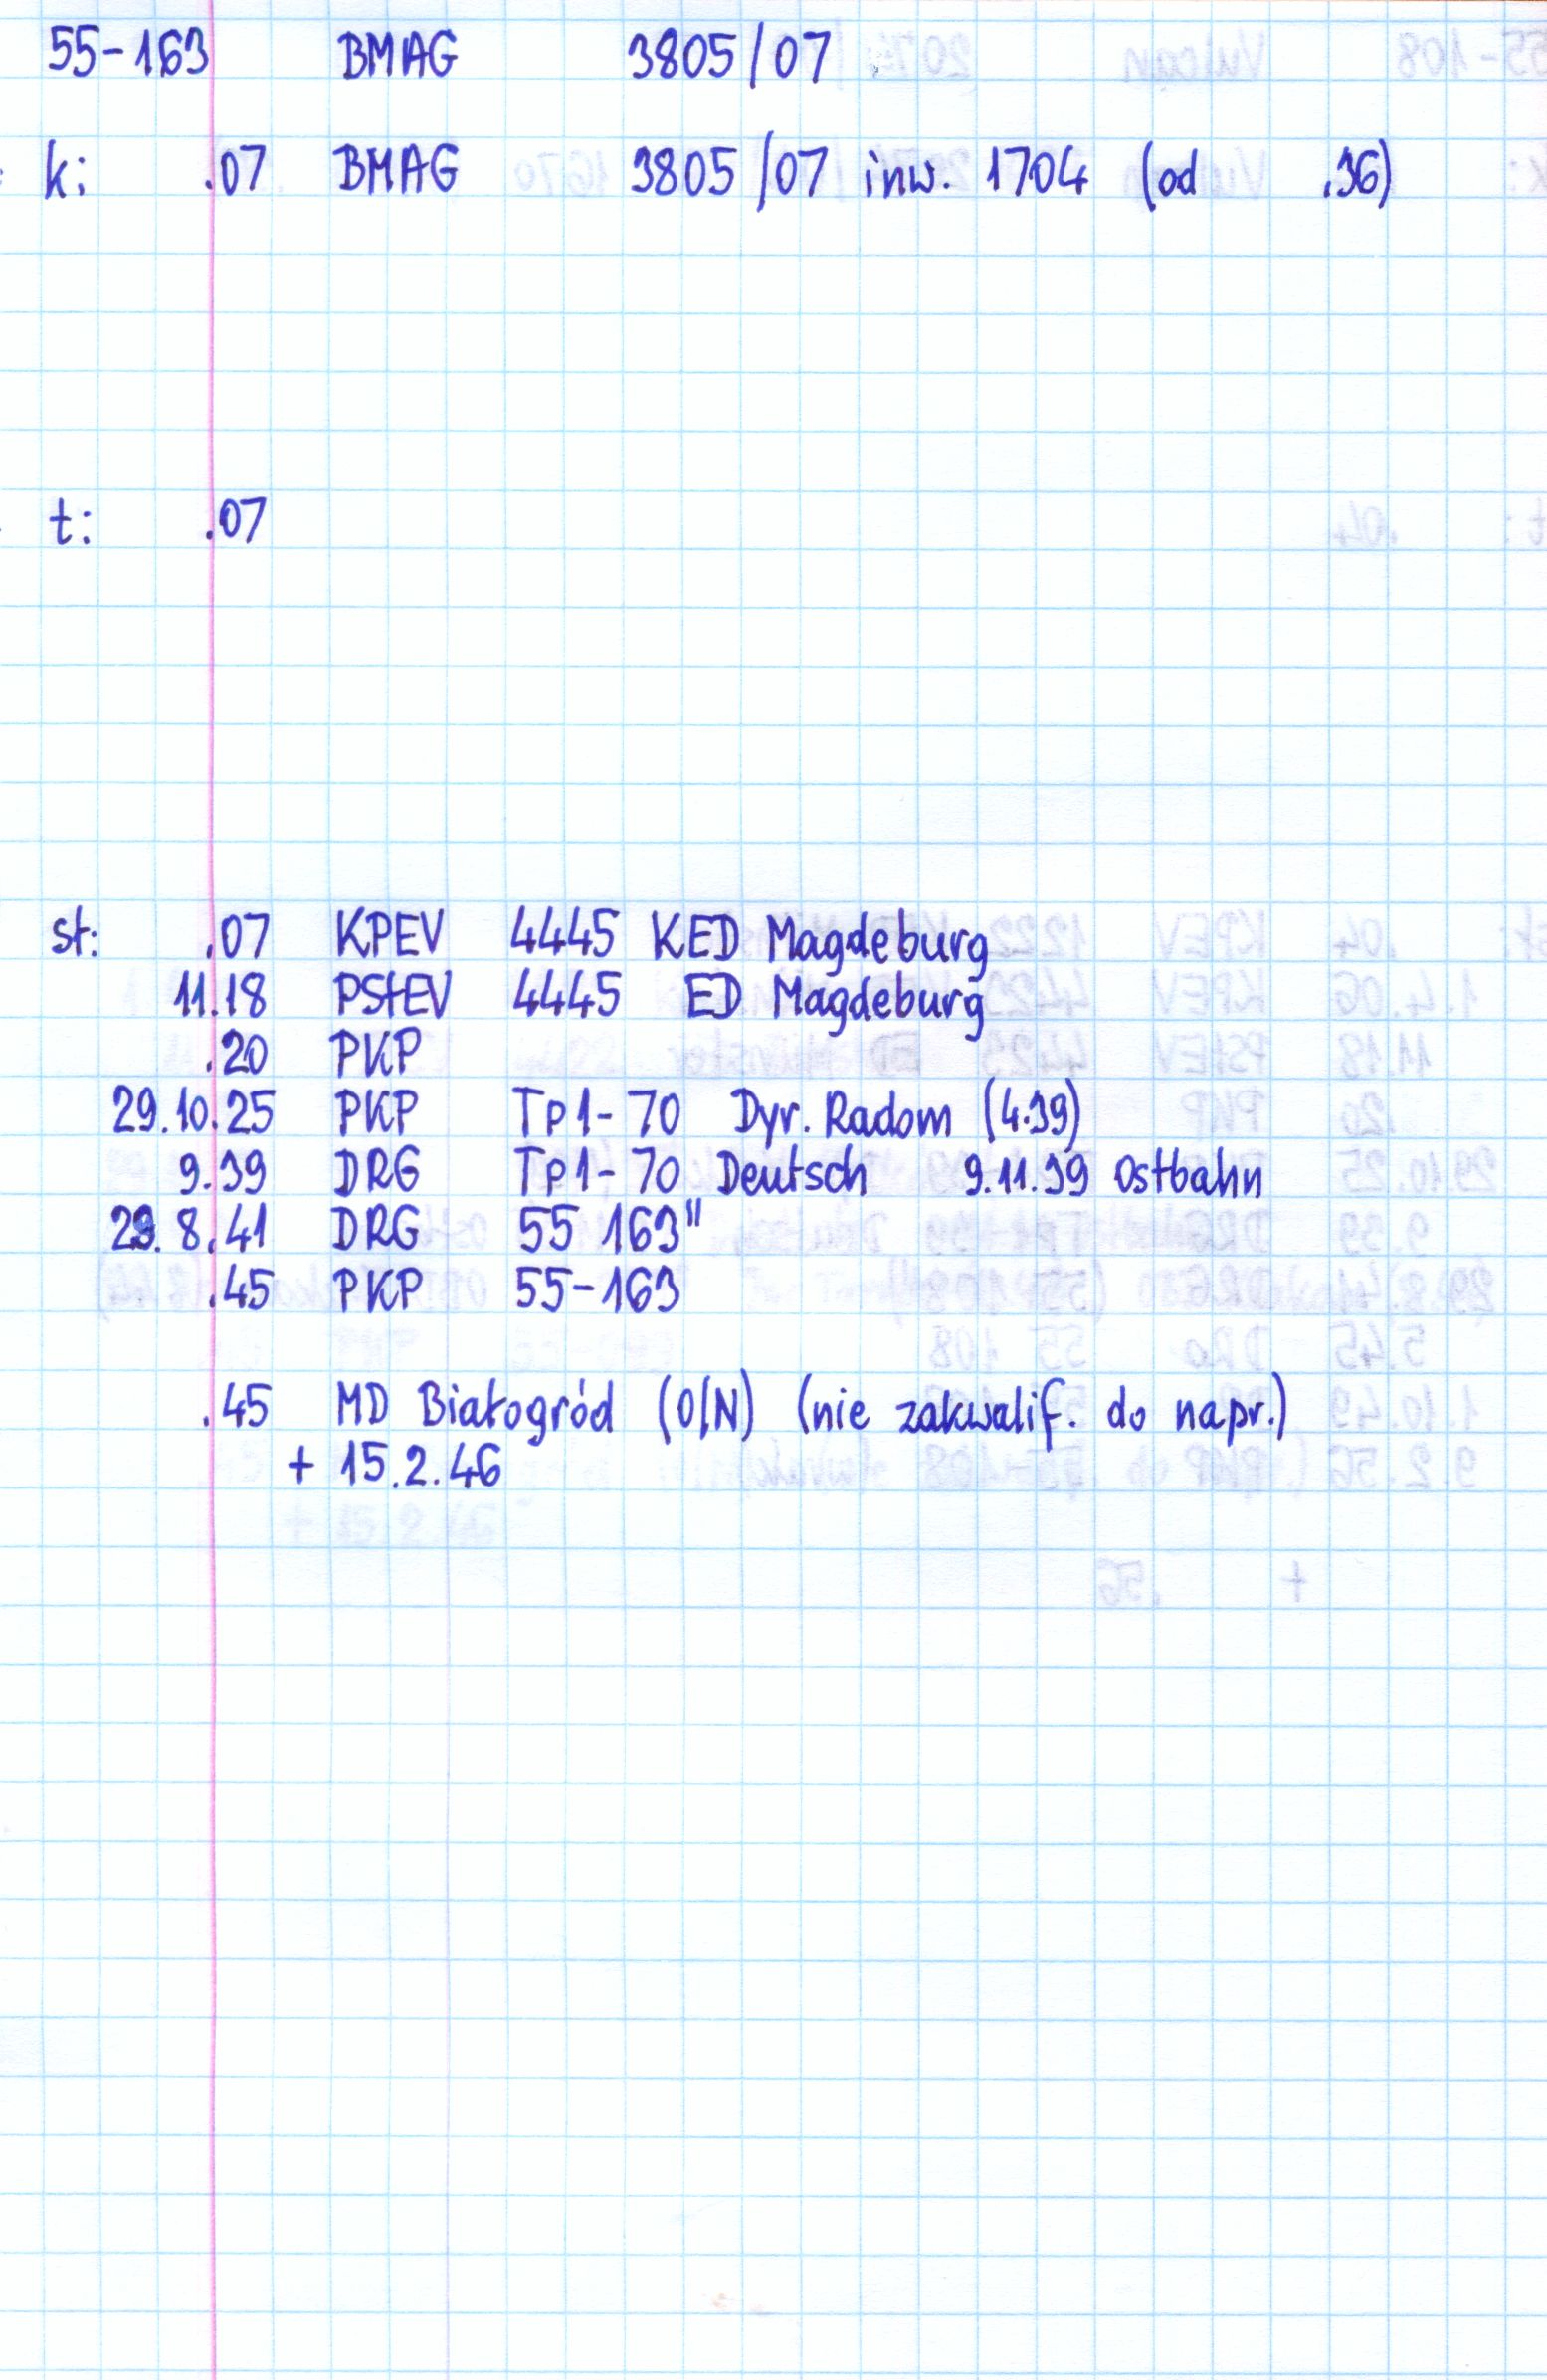 55-163 BMAG 3805/07
k: .07 BMAG 3805/07 inw. 1704 (od .36)
t: .07
st: .07 KPEV 4445 KED Magdeburg
11.18 PStEV 4445 ED Magdeburg
.20 PKP
29.10.25 PKP Tp1-70 Dyr. Radom (4.39)
9.39 DRG Tp1-70 Deutsch 9.11.39 Ostbahn
29.8.41 DRG 55 163"
.45 PKP 55-163
.45 MD Białogród (O/N) (nie zakwalif. do napr.)
+ 15.2.46